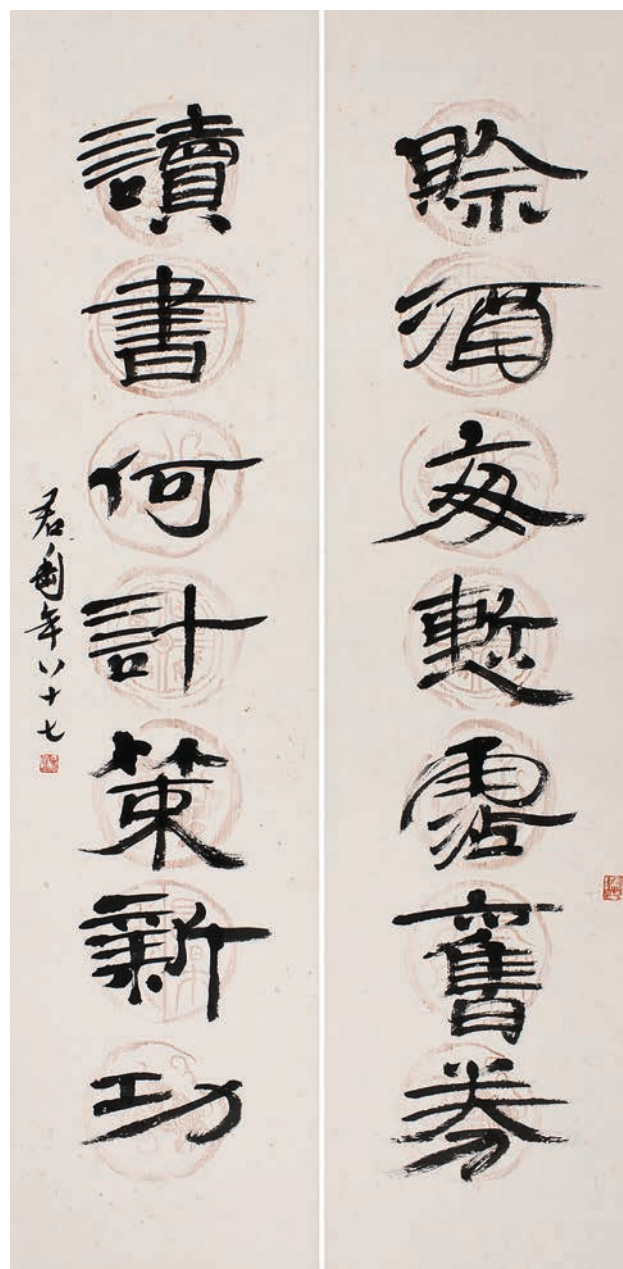 賒酒每慙霑舊券
讀書何計策新功
君匋年八十七